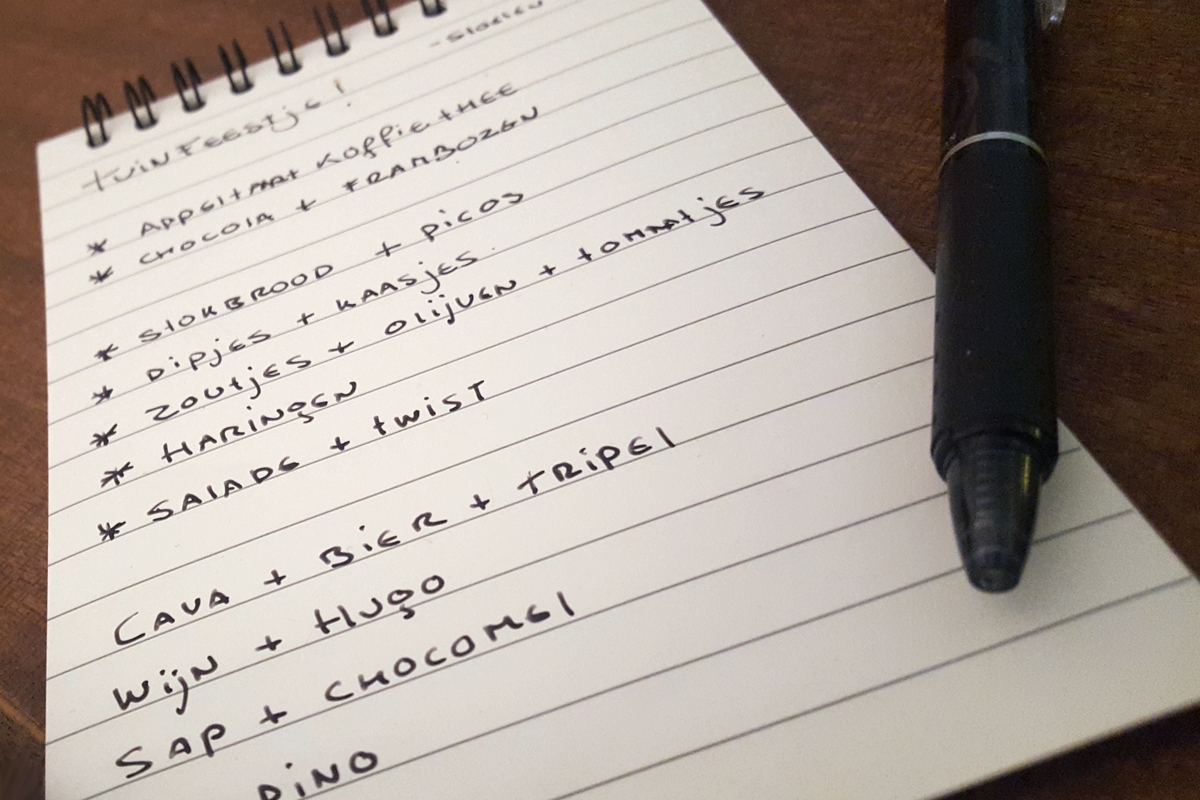 - stoelen
tuinfeestje!
* Appeltaart koffie + thee
* chocola + frambozen
* stokbrood + picos
* dipjes + kaasjes
* zoutjes + olijven + tomaatjes
* Haringen
* salade + twist
Cava + Bier + tripel
Wijn + Hugo
Sap + chocomel